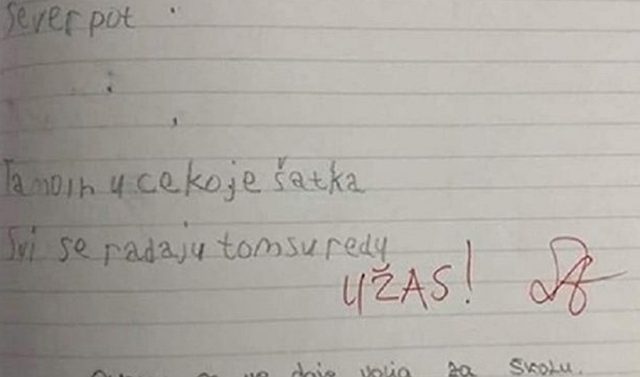 sever pot
Tamoin u cekoje šatka
Svi se radaju tomsuredu
UŽAS!
za školu.